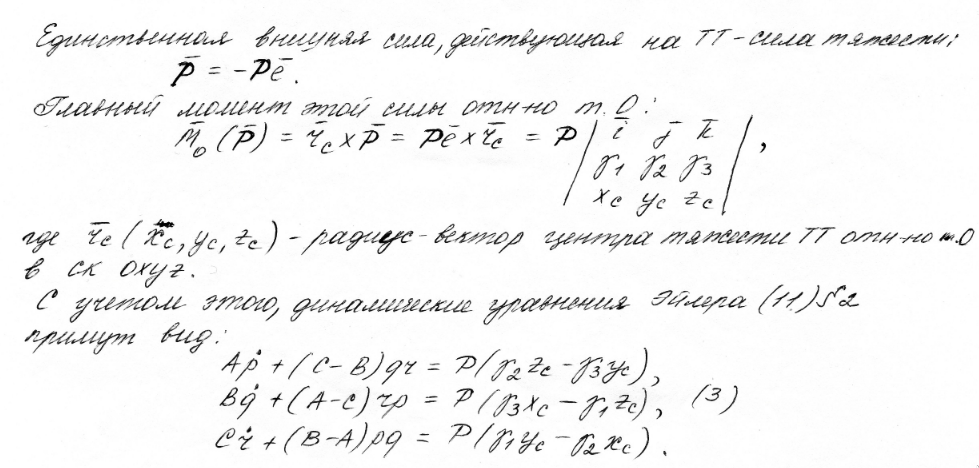 Единственная внешняя сила, действующая на ТТ - сила тяжести:
P̄ = -Pē.
Главный момент этой силы отн-но т. O:
M̄₀(P̄) = r̄c × P̄ = Pē × r̄c = P | ī j̄ k̄ |
| γ₁ γ₂ γ₃ | ,
| xc yc zc |
где r̄c (xc, yc, zc) - радиус-вектор центра тяжести ТТ отн-но т.O
в ск Oxyz.
С учетом этого, динамические уравнения Эйлера (11) §2
примут вид:
Aṗ + (C-B)qr = P(γ₂zc - γ₃yc),
Bq̇ + (A-C)rp = P(γ₃xc - γ₁zc), (3)
Cṙ + (B-A)pq = P(γ₁yc - γ₂xc).